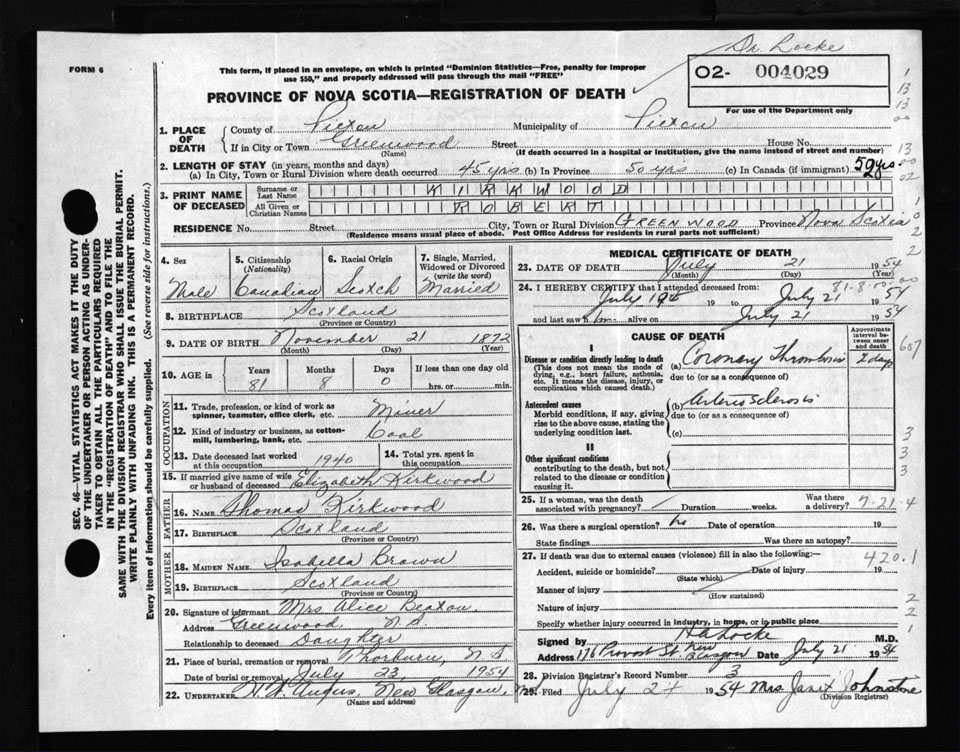 Dr. Locke
FORM 6
This form, if placed in an envelope, on which is printed "Dominion Statistics—Free, penalty for improper
use $50," and properly addressed will pass through the mail "FREE"
02- 004029
PROVINCE OF NOVA SCOTIA—REGISTRATION OF DEATH
For use of the Department only
1. PLACE OF DEATH { County of Pictou Municipality of Pictou
If in City or Town Greenwood Street House No.
(Name) (If death occurred in a hospital or institution, give the name instead of street and number)
2. LENGTH OF STAY (in years, months and days)
(a) In City, Town or Rural Division where death occurred 45 yrs (b) In Province 50 yrs (c) In Canada (if immigrant) 50 yrs
3. PRINT NAME OF DECEASED { Surname or Last Name KIRKWOOD
All Given or Christian Names ROBERT
RESIDENCE No. Street City, Town or Rural Division GREENWOOD Province Nova Scotia
(Residence means usual place of abode. Post Office Address for residents in rural parts not sufficient)
SEC. 46—VITAL STATISTICS ACT MAKES IT THE DUTY
OF THE UNDERTAKER OR PERSON ACTING AS UNDER-
TAKER TO OBTAIN ALL THE PARTICULARS REQUIRED
IN THE "REGISTRATION OF DEATH" AND TO FILE THE
SAME WITH THE DIVISION REGISTRAR WHO SHALL ISSUE THE BURIAL PERMIT.
WRITE PLAINLY WITH UNFADING INK. THIS IS A PERMANENT RECORD.
Every item of information should be carefully supplied. (See reverse side for instructions.)
4. Sex
Male
5. Citizenship
(Nationality)
Canadian
6. Racial Origin
Scotch
7. Single, Married,
Widowed or Divorced
(write the word)
Married
8. BIRTHPLACE Scotland
(Province or Country)
9. DATE OF BIRTH November 21 1872
(Month) (Day) (Year)
10. AGE Years Months Days If less than one day old
81 8 0 hrs. or min.
OCCUPATION
11. Trade, profession, or kind of work as
spinner, teamster, office clerk, etc. Miner
12. Kind of industry or business, as cotton-
mill, lumbering, bank, etc. Coal
13. Date deceased last worked
at this occupation 1940
14. Total yrs. spent in
this occupation
15. If married give name of wife
or husband of deceased Elizabeth Kirkwood
FATHER
16. NAME Thomas Kirkwood
17. BIRTHPLACE Scotland
(Province or Country)
MOTHER
18. MAIDEN NAME Isabella Brown
19. BIRTHPLACE Scotland
(Province or Country)
20. Signature of informant Mrs Alice Beaton
Address Greenwood N.S.
Relationship to deceased Daughter
21. Place of burial, cremation or removal Thorburn, N S
Date of burial or removal July 23, 1954
22. UNDERTAKER H. W. Angus, New Glasgow,
(Name and address)
MEDICAL CERTIFICATE OF DEATH
23. DATE OF DEATH July 21 1954
(Month) (Day) (Year)
81-8-00
24. I HEREBY CERTIFY that I attended deceased from:
July 19th 19 to July 21 1954
and last saw him alive on July 21 1954
CAUSE OF DEATH
Approximate interval between onset and death
I
Disease or condition directly leading to death
(This does not mean the mode of
dying, e.g., heart failure, asthenia,
etc. It means the disease, injury, or
complication which caused death.)
(a) Coronary Thrombosis 2 days
due to (or as a consequence of)
Antecedent causes
Morbid conditions, if any, giving
rise to the above cause, stating the
underlying condition last.
(b) Arteriosclerosis
due to (or as a consequence of)
(c)
II
Other significant conditions
contributing to the death, but not
related to the disease or condition
causing it.
25. If a woman, was the death
associated with pregnancy? Duration weeks. Was there
a delivery? 7-21-4
26. Was there surgical operation? no Date of operation 19
State findings Was there an autopsy?
27. If death was due to external causes (violence) fill in also the following: 420.1
Accident, suicide or homicide? Date of injury 19
(State which)
Manner of injury
(How sustained)
Nature of injury
Specify whether injury occurred in industry, in home, or in public place
Signed by H A Locke M.D.
Address 176 Provost St. New Glasgow Date July 21 1954
28. Division Registrar's Record Number 3
29. Filed July 24 1954 Mrs. Janet Johnstone
(Division Registrar)